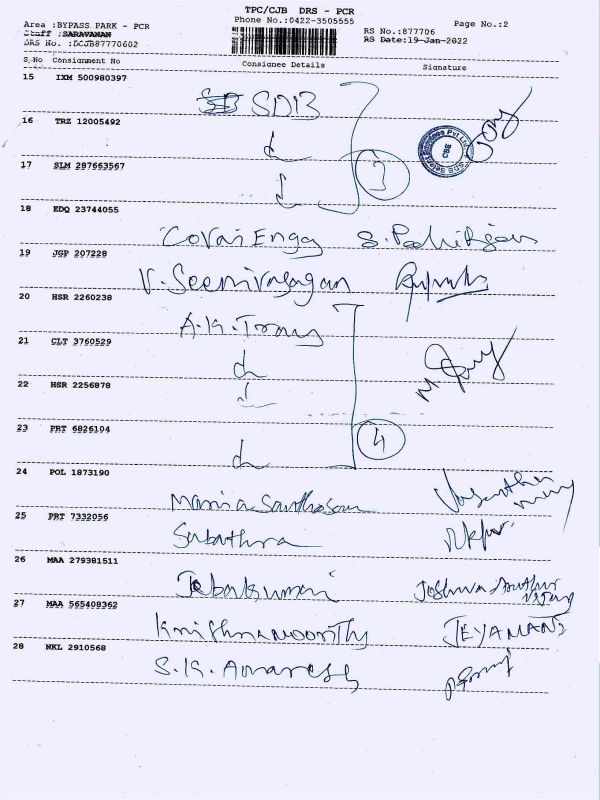 TPC/CJB DRS - PCR
Area :BYPASS PARK - PCR Phone No.:0422-3505555 Page No.:2
Staff :SARAVANAN RS No.:877706
DRS No. :DCJB87770602 RS Date:19-Jan-2022
S.No Consignment No Consignee Details Signature
15 IXM 500980397
SDB
16 TRZ 12005492
17 SLM 297663567
3
18 EDQ 23744055
Covai Engg
19 JGP 207228
V. Seenivasagan
20 HSR 2260238
A.K.
21 CLT 3760529
22 HSR 2256878
23 PRT 6826194
4
24 POL 1873190
Maria Santhosam
25 PRT 7332056
Subathra
26 MAA 279381511
Jebakumari Joshua
27 MAA 565408362
Krishnamoorthy JEYAMANI
28 NKL 2910568
S.K. Amaresh